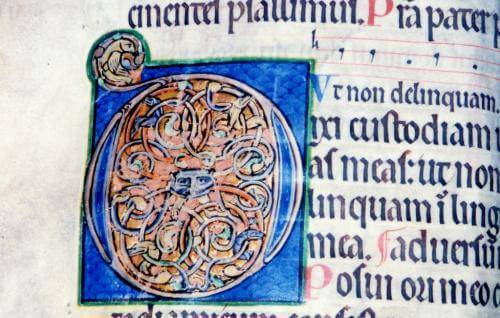 cinentes psallimus. Pra pater p
Vt non delinquam
Dixi custodiam
as meas: ut non
linquam ī ling
mea.
Posui ori meo c